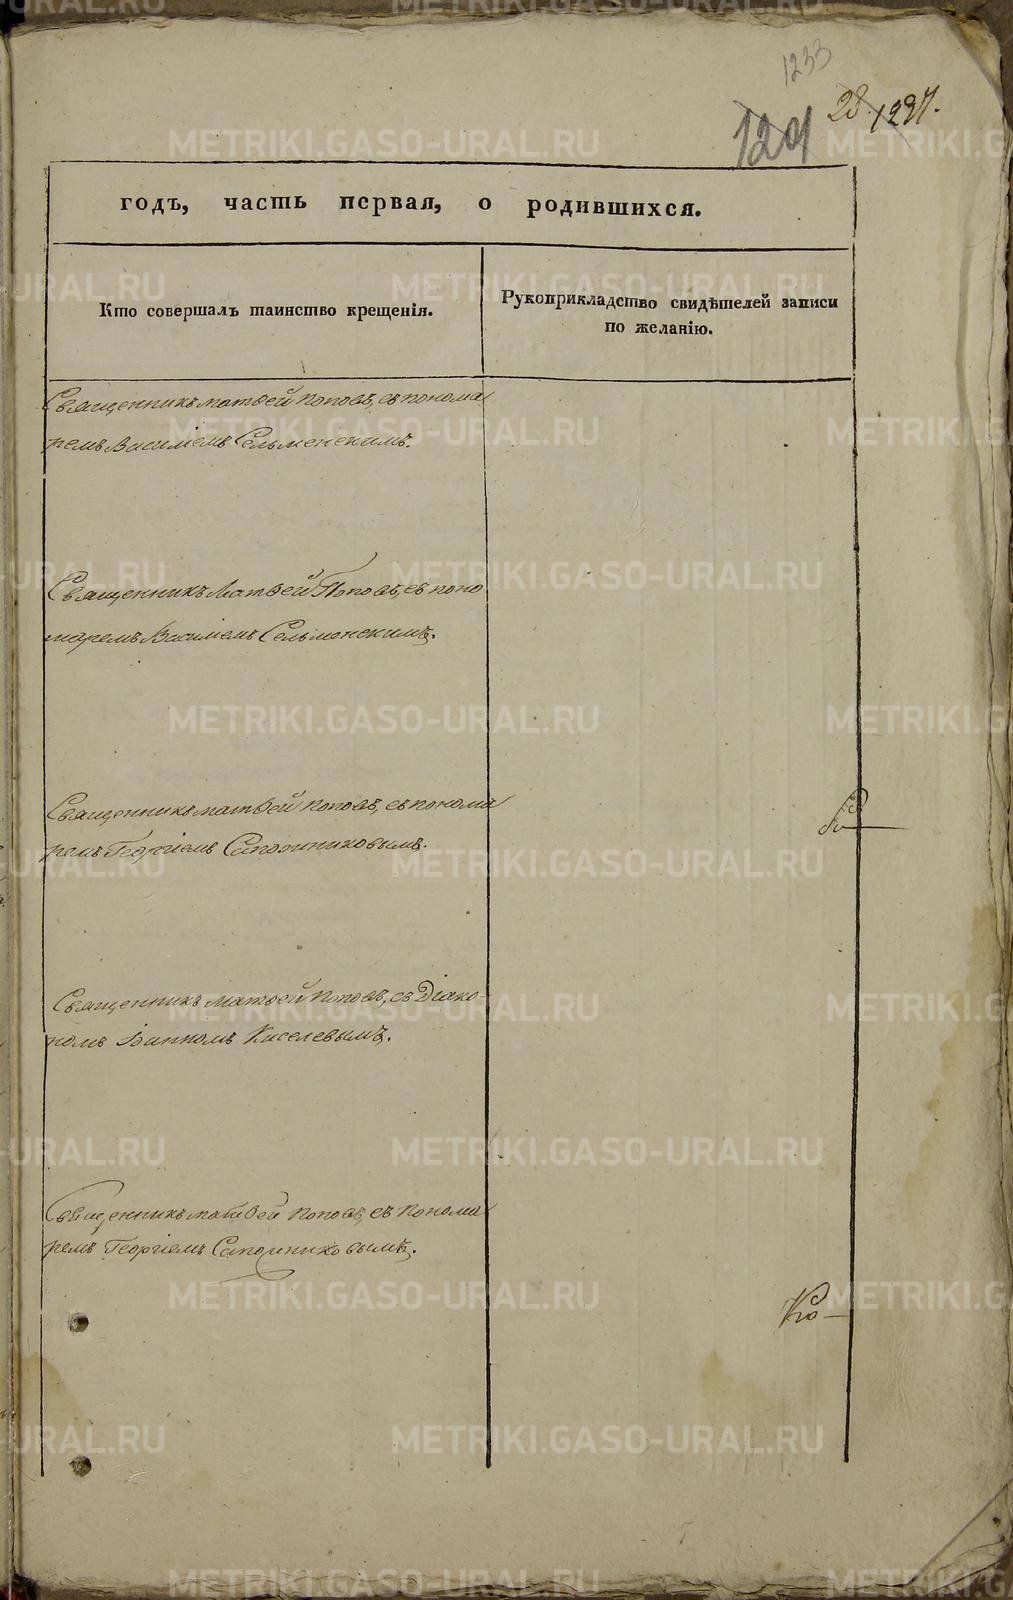 1233
1201
28. 1237.
годъ, часть первая, о родившихся.
Кто совершалъ таинство крещенія.
Рукоприкладство свидѣтелей записи
по желанію.
Священникъ Матѳей Поповъ, съ понома
ремъ Василіемъ Сельменскимъ.
Священникъ Матѳей Поповъ, съ поно
маремъ Василіемъ Сельменскимъ.
Священникъ Матѳей Поповъ, съ понома
ремъ Георгіемъ Сапожниковымъ.
Священникъ Матѳей Поповъ, съ Діако-
номъ Іоанномъ Киселевымъ.
Священникъ Матѳей Поповъ, съ Понома
ремъ Георгіемъ Сапожниковымъ.
Ко
METRIKI.GASO-URAL.RU